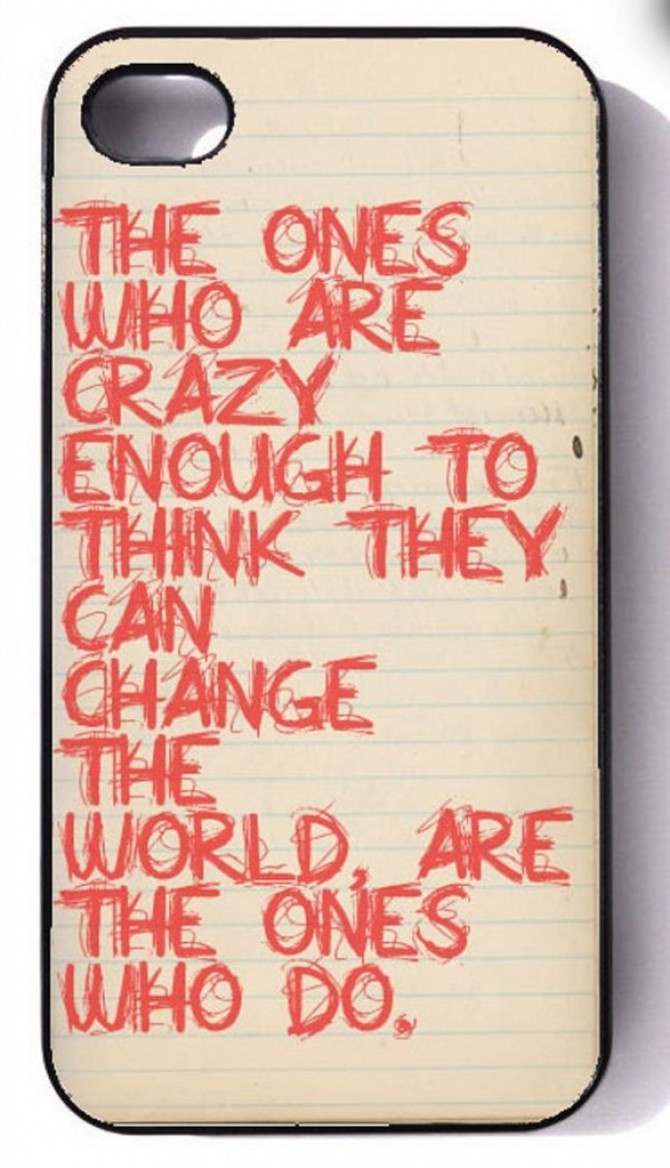 THE ONES
WHO ARE
CRAZY
ENOUGH TO
THINK THEY
CAN
CHANGE
THE
WORLD, ARE
THE ONES
WHO DO.